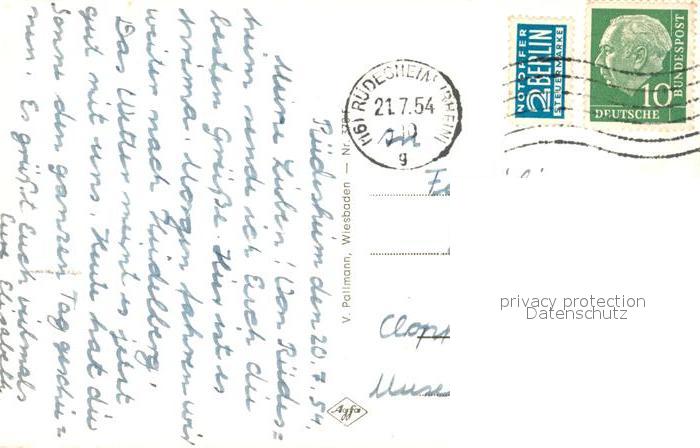 Rüdesheim den 20.7.54.
Meine Lieben! Von Rüdes=
heim sende ich Euch die
besten Grüße. Hier ist es
prima. Morgen fahren wir
weiter nach Heidelberg.
Das Wetter meint es jetzt
gut mit uns. Heute hat die
Sonne den ganzen Tag geschie=
nen. Es grüßt Euch vielmals
Eure Elisabeth
V. Pallmann, Wiesbaden — Nr. 378
Agfa
(16) RÜDESHEIM (RHEIN)
21.7.54
g
NOTOPFER
2 BERLIN
STEUERMARKE
10
DEUTSCHE
BUNDESPOST
Clop
Muse
privacy protection
Datenschutz